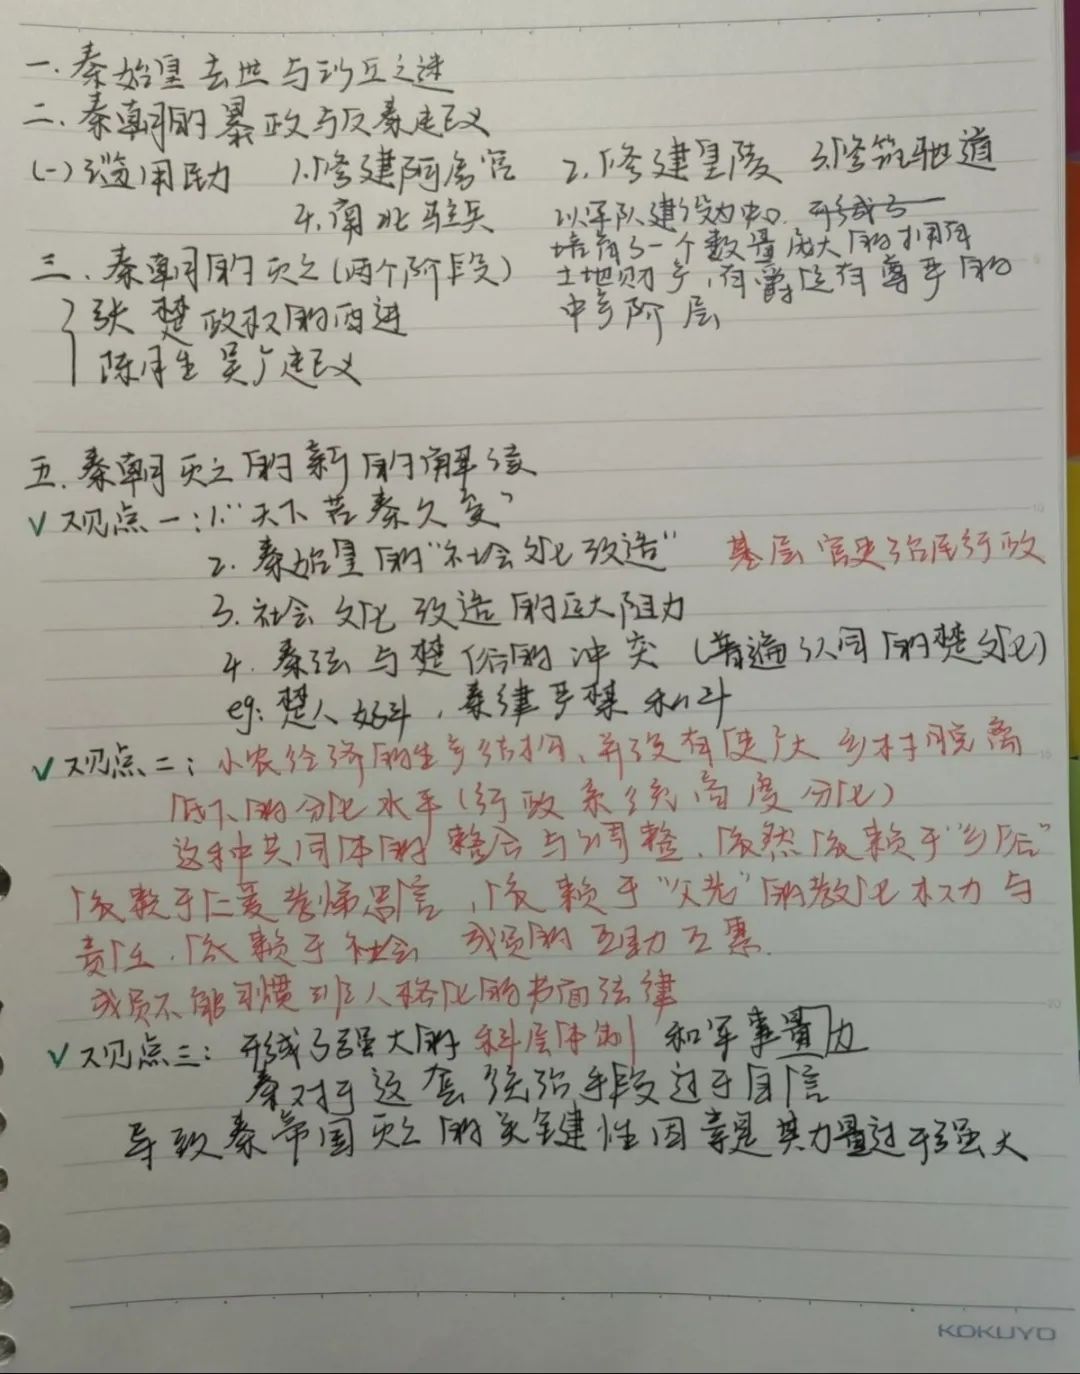 一.秦始皇去世与沙丘之谜
二.秦朝的暴政与反秦起义
(一)滥用民力 1.修建阿房宫 2.修建皇陵 3.修筑驰道
4.南北驻兵 以军队建设为中心.形成了
培育了一个数量庞大的拥有
三.秦朝的灭亡(两个阶段) 土地财产,有爵位有尊严的
张楚政权的西进 中产阶层
陈胜吴广起义
五.秦朝灭亡的新的解读
✓观点一:1.“天下苦秦久矣”
2.秦始皇的“社会文化改造” 基层官吏治民行政
3.社会文化改造的巨大阻力
4.秦法与楚俗的冲突(普遍认同的楚文化)
eg:楚人好斗,秦律严禁私斗
✓观点二:小农经济的生产结构、并没有使广大乡村脱离
低下的分化水平(行政系统高度分化)
这种共同体的整合与调整、依然依赖于“乡俗”
依赖于仁爱孝悌忠信,依赖于“父老”的教化权力与
责任.依赖于社会成员的互助互惠.
成员不能习惯非人格化的书面法律
✓观点三:形成了强大的科层体制和军事量力
秦对于这套统治手段过于自信
导致秦帝国灭亡的关键性因素是其力量过于强大
KOKUYO